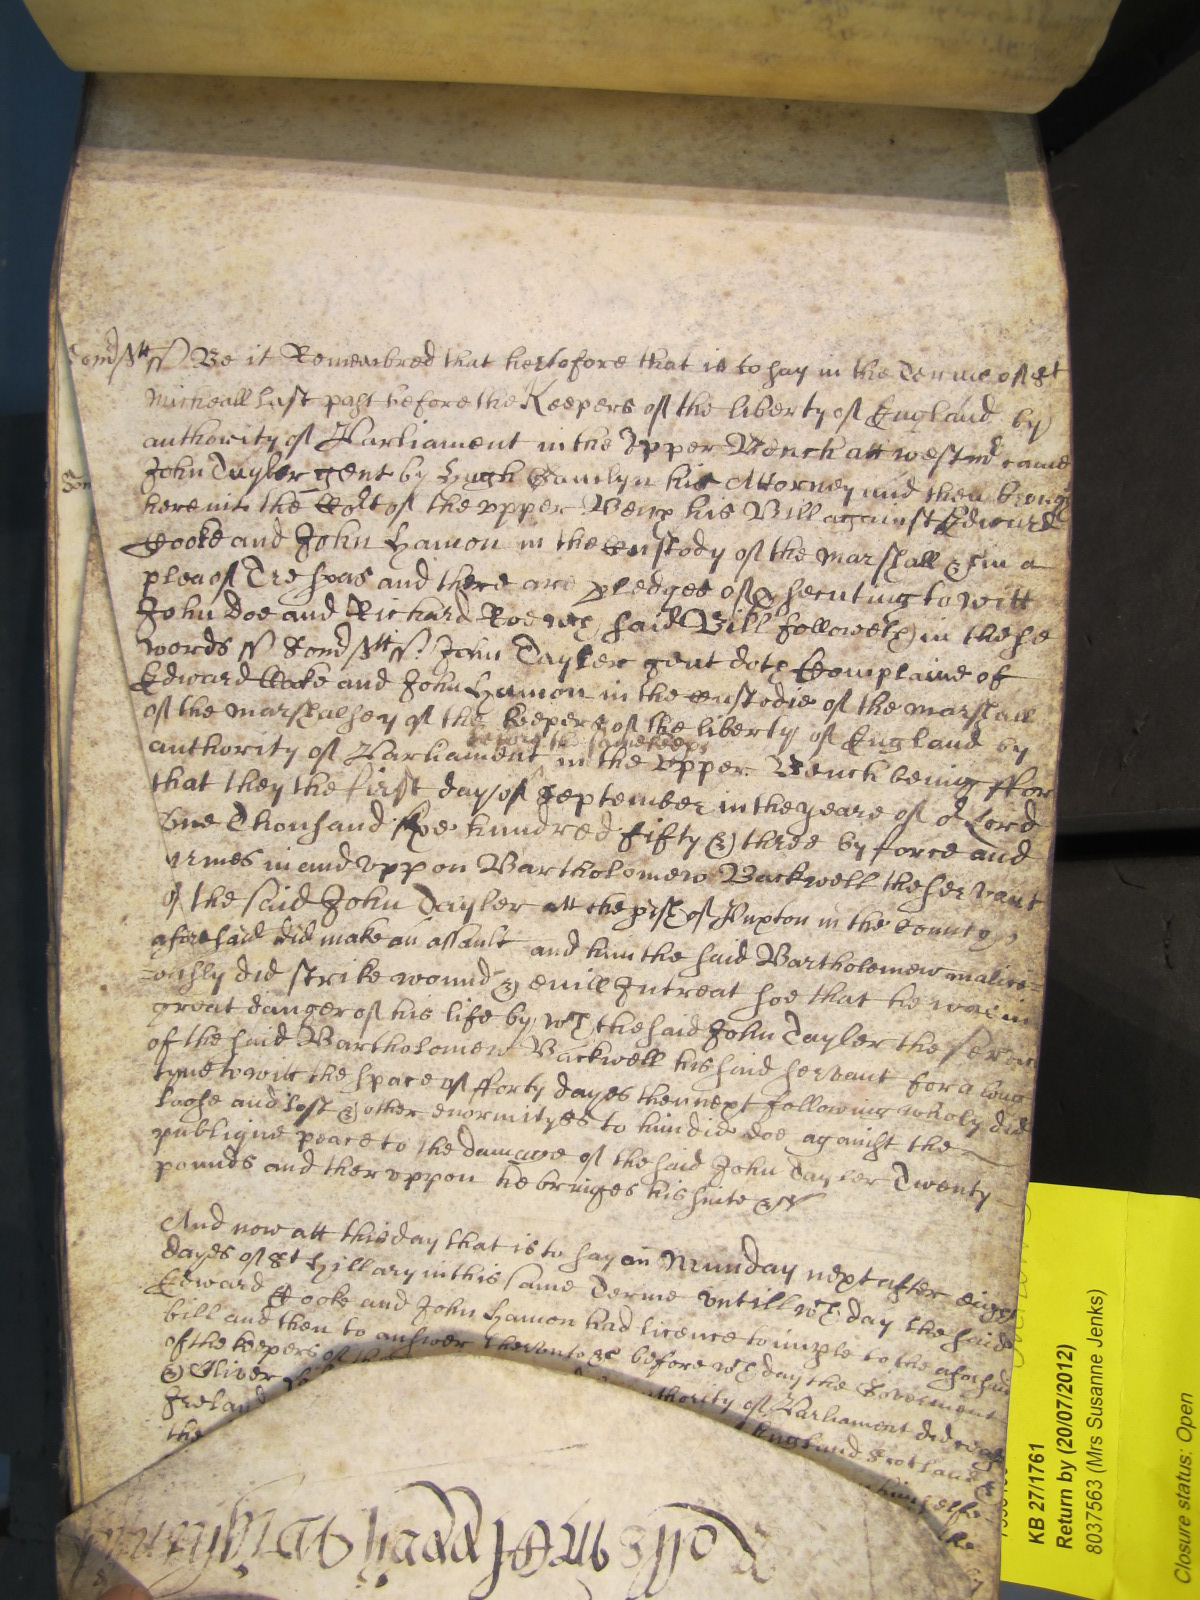 Somᵈsᵗᵗ ss Be it Remembred that heretofore that is to say in the Terme of Sᵗ
Micheall last past before the Keepers of the liberty of England by
authority of Parliament in the Upper Bench att westmᵈ came
John Tayler gent by Hugh his Attorney and then
here into the Cort of the upper Bench his Bill against Edward
Cooke and John Hamon in the Custody of the Marshall &c in a
plea of Trespas and there are pledges of prosecuting to witt
John Doe and Richard Roe wᶜʰ said Bill followeth in these
words ss Somᵈsᵗᵗ ss John Tayler gent doth Complaine of
Edward Cooke and John Hamon in the Custodie of the Marshall
of the Marshalsey of the keepers of the liberty of England by
before the same keepers
authority of Parliament in the upper Bench being ffor
that they the first day of September in the yeare of oʳ Lord
One Thousand six hundred fifty & three by force and
armes in and vppon Bartholomew Backwell the servant
of the said John Tayler att the pish of Puxton in the County
aforesaid did make an assault and him the said Bartholomew malici=
=ously did strike wound & euill Intreat soe that he was in
great danger of his life by wᶜʰ the said John Tayler the service
of the said Bartholomew Backwell his said servant for a long
tyme to witt the space of fforty dayes then next following wholy did
loose and lost & other enormityes to him did doe against the
publique peace to the damage of the said John Tayler Twenty
pounds and thervppon he bringes his suite &c
And now att this day that is to say on Munday next after eight
dayes of Sᵗ Hillary in this same Terme vntill wᶜʰ day the said
Edward Cooke and John Hamon had licence to imple to the aforesaid
bill and then to answer thervnto &c before wᶜʰ day the Goverment
of the keepers of the authority of Parliament did
& Oliver England Scotland &
Ireland himselfe
the
KB 27/1761
Return by (20/07/2012)
8037563 (Mrs Susanne Jenks)
Closure status: Open